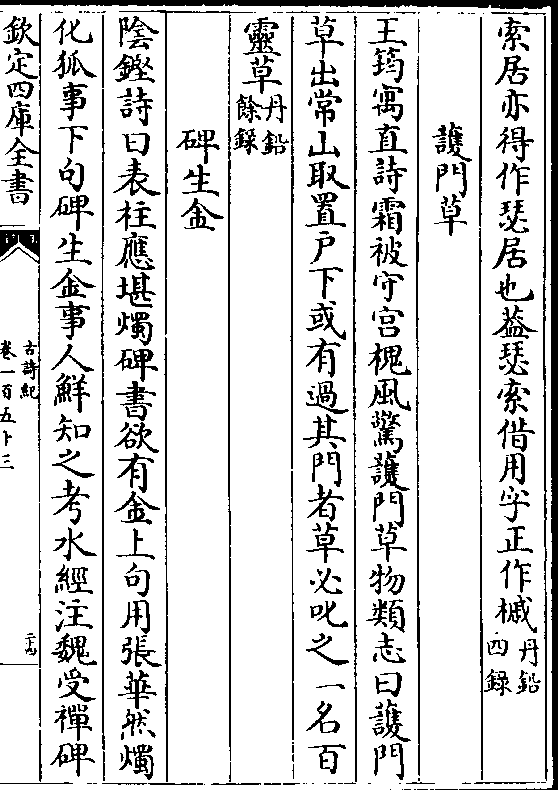 索居亦得作瑟居也葢瑟索借用字正作槭丹鉛
四錄
護門草
王筠寓直詩霜被守宫槐風驚護門草物類志曰護門
草出常山取置户下或有過其門者草必叱之一名百
靈草丹鉛
餘錄
碑生金
陰鏗詩曰表柱應堪燭碑書欲有金上句用張華然燭
化狐事下句碑生金事人鮮知之考水經注魏受禪碑
欽定四庫全書
古詩紀
卷一百五十三
二十四